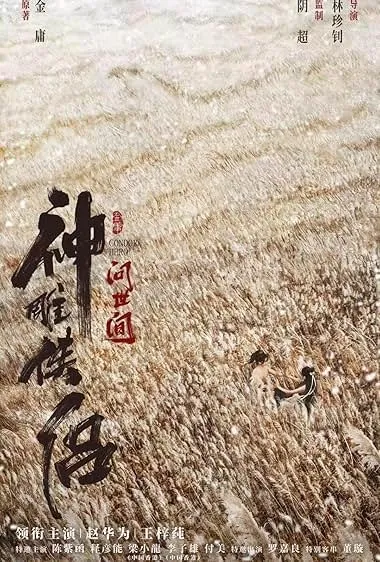 原著
金庸
监制
阴超
导演
林珍钊
神雕侠侣
问世间
领衔主演 赵华为 王梓莼
特邀主演 陈紫函 释彦能 梁小龍 李子雄 付美 特邀出演 罗嘉良 特别客串 董璇
(中国香港) (中国香港)